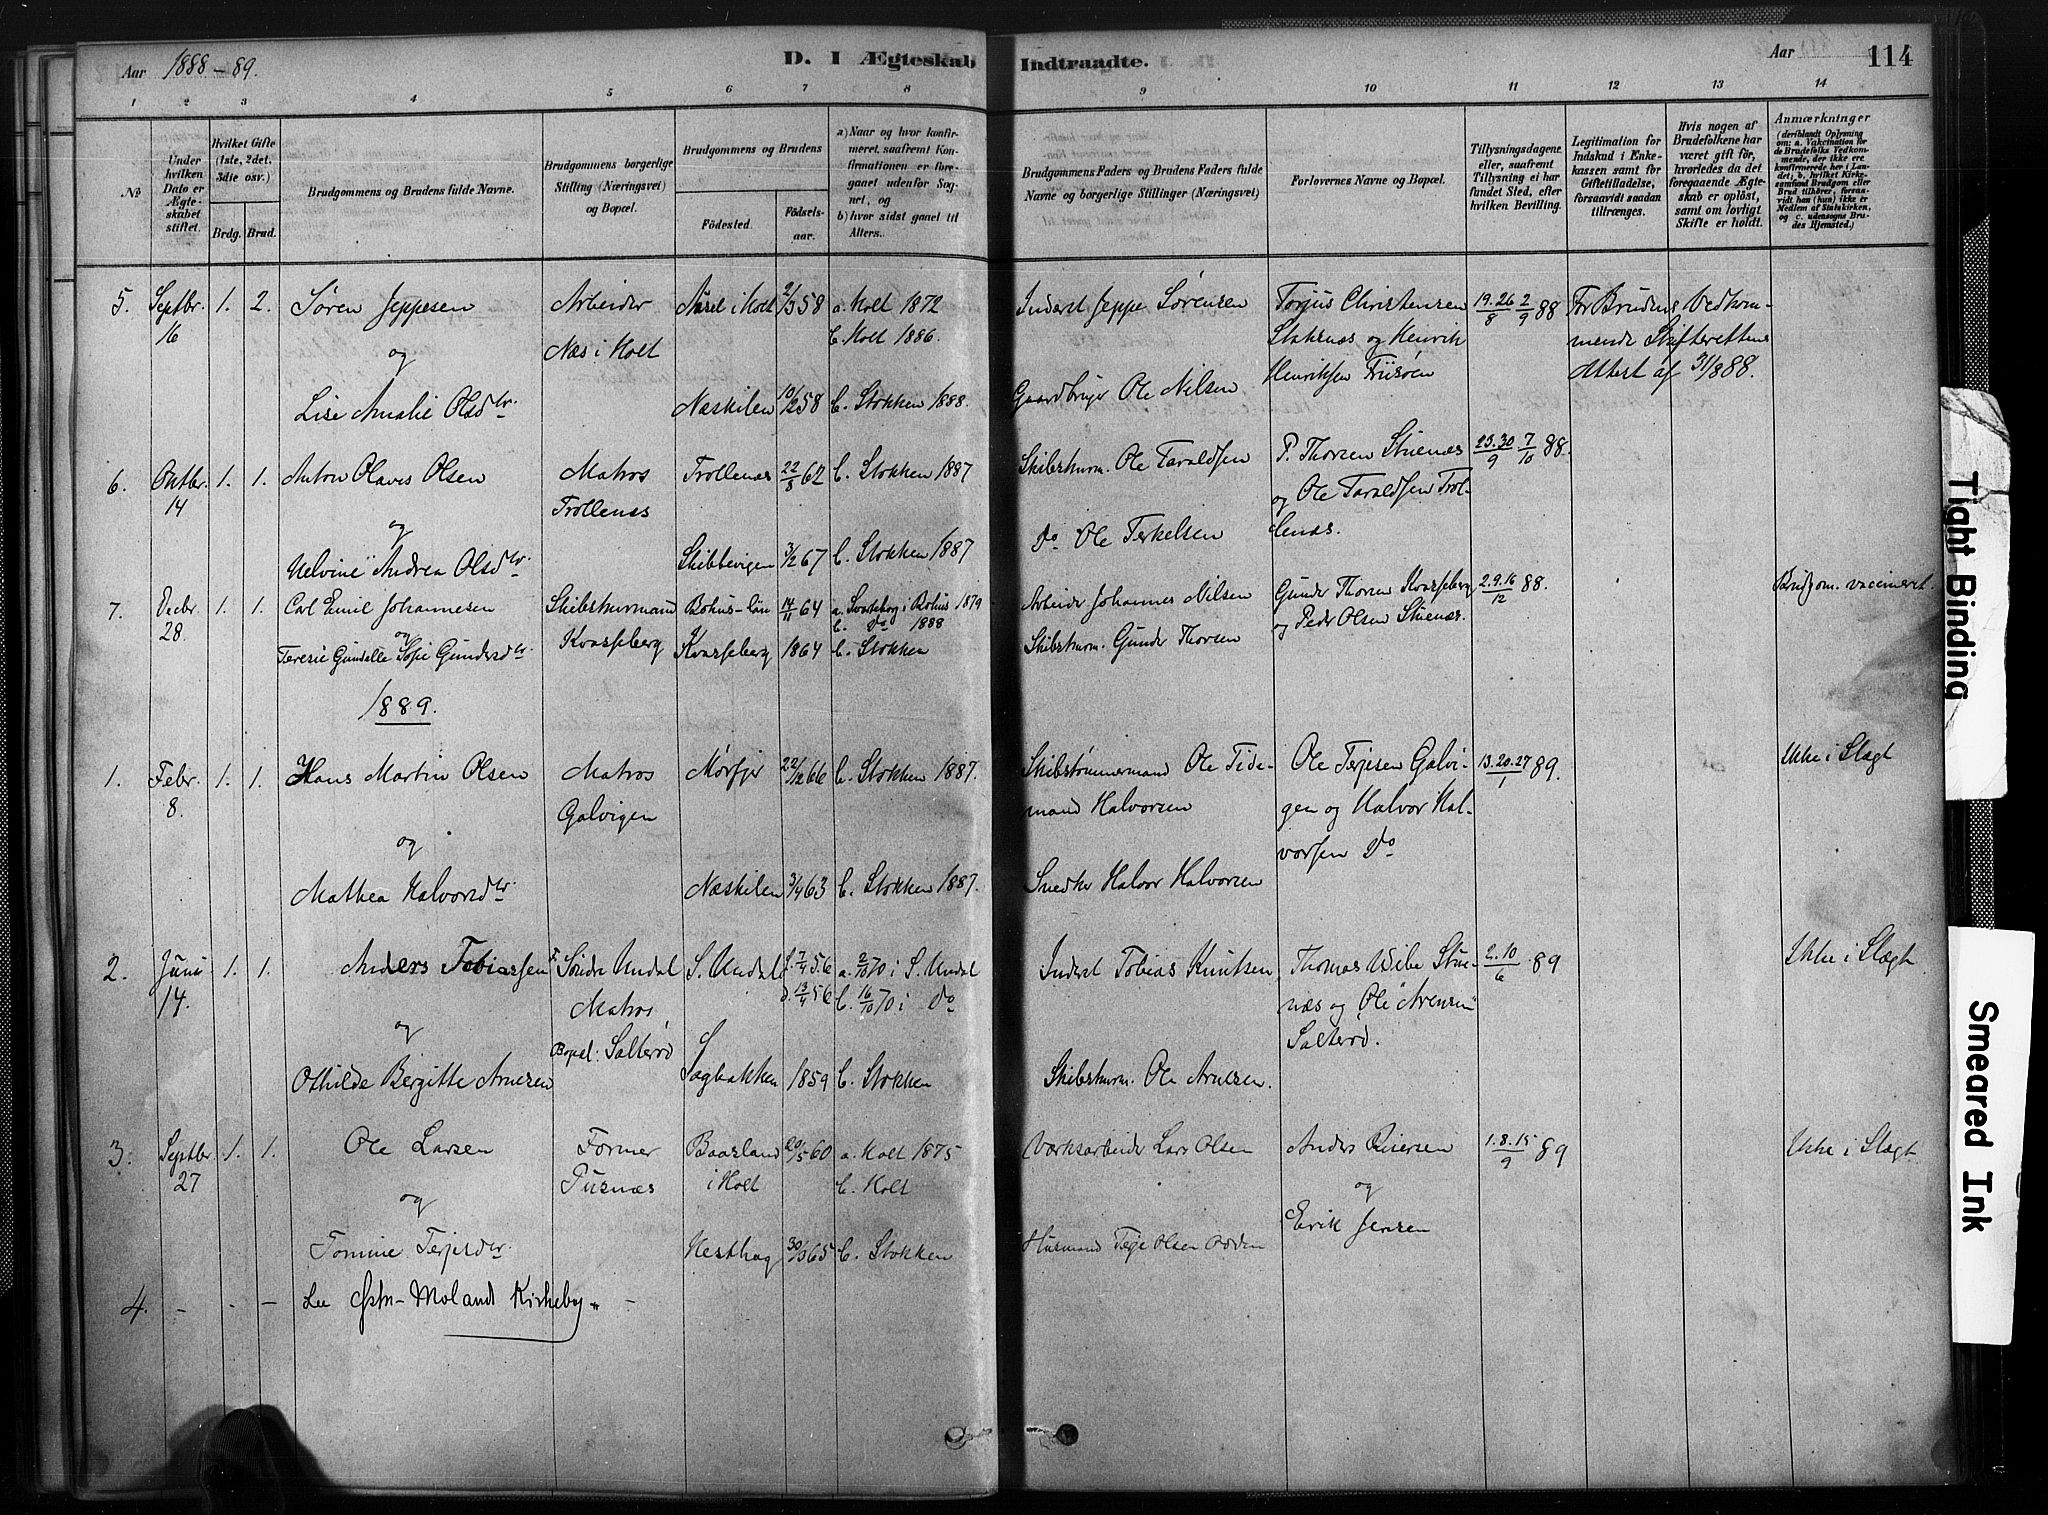 Aar 1888-89.
D. I Ægteskab Indtraadte.
Aar
114
1 2 3 4 5 6 7 8 9 10 11 12 13 14
№
Under hvilken Dato er Ægteskabet stiftet.
Hvilket Gifte (1ste, 2det, 3die osv.)
Brdg. Brud.
Brudgommens og Brudens fulde Navne.
Brudgommens borgerlige Stilling (Næringsvei) og Bopæl.
Brudgommens og Brudens
Födested. Födselsaar.
a) Naar og hvor konfirmeret, saafremt Konfirmationen er foregaaet udenfor Sognet, og
b) hvor sidst gaaet til Alters.
Brudgommens Faders og Brudens Faders fulde Navne og borgerlige Stillinger (Næringsvei)
Forlovernes Navne og Bopæl.
Tillysningsdagene eller, saafremt Tillysning ei har fundet Sted, efter hvilken Bevilling.
Legitimation for Indskud i Enkekassen samt for Giftetilladelse, forsaavidt saadan tiltrænges.
Hvis nogen af Brudefolkene har været gift för, hvorledes da det foregaaende Ægteskab er oplöst, samt om lovligt Skifte er holdt.
Anmærkninger
(deriblandt Oplysning om: a. Vaccination for de Brudefolks Vedkommende, der ikke ere konfirmerede her i Landet; b. hvilket Kirkesamfund Brudgom eller Brud tilhörer, forsaavidt han (hun) ikke er Medlem af Statskirken, og c. udensogns Brudes Hjemsted.)
5. Septbr. 16 1. 2. Søren Jeppesen Arbeider Næs i Holt i Holt 2/3 58 a. Holt 1872 b. Holt 1886. Inderst Jeppe Sørensen Torjus Christensen Staknæs og Henrik Henriksen Friisøen 19.26/8 2/9 88 For Brudens Vedkommende Skifterettens Attest af 31/8 88.
og
Lise Amalie Olsdtr. Næskilen 10/2 58 b. Stokken 1888. Gaardbruger Ole Nilsen
6. Oktbr. 14 1. 1. Anton Olaves Olsen Matros Trollenæs Trollenæs 22/8 62 b. Stokken 1887 Skibstmrm. Ole Taraldsen P. Thorsen Stuenæs og Ole Taraldsen Trollenæs. 23.30/9 7/10 88.
og
Helvine Andrea Olsdtr. Skibbevigen 3/2 67 b. Stokken 1887 Do Ole Terkelsen
7. Decbr. 28 1. 1. Carl Emil Johannesen Skibstmrmand Kvasseberg Bohus-län 14/11 64 a. Svarteborg i Bohus 1879 b. Do 1888 Arbeider Johannes Nilsen Gunder Thorsen Kvasseberg og Peder Olsen Stuenæs. 2.9.16/12 88. Brudgom. vaccineret.
og
Teresie Gundelle Sofie Gundersdtr. Kvasseberg 1864 b. Stokken Skibstmrm. Gunder Thorsen
1889.
1. Febr. 8 1. 1. Hans Martin Olsen Matros Galvigen Mørfjer 22/12 66 b. Stokken 1887. Skibstømmermand Ole Tidemand Halvorsen Ole Terjesen Galvigen og Halvor Halvorsen Do 13.20.27/1 89. Ikke i Slægt
og
Mathea Halvorsdtr. Næskilen 3/4 63 b. Stokken 1887. Snedker Halvor Halvorsen
2. Juni 14. 1. 1. Anders Tobiassen F. Søndre Undal Matros Bopæl: Salterød S. Undal f. 7/4 56 d. 13/4 56 a. 2/10 70 i S. Undal b. 16/10 70 i Do Inderst Tobias Knutsen Thomas Wibe Stuenæs og Ole Arensen Salterød. 2.10/6 89 Ikke i Slægt
og
Othilde Bergitte Arnesen Sagbakken 1859 b. Stokken Skibstmrm. Ole Arnesen.
3. Septbr. 27 1. 1. Ole Larsen Former Fusnæs Baasland i Holt 20/5 60 a. Holt 1875 b. Holt Værksarbeider Lars Olsen Anders Reiersen og Erik Jensen 1.8.15/9 89 Ikke i Slægt
og
Tomine Terjesdtr. Nesthag 30/3 65 b. Stokken Husmand Terje Olsen Odden
4. - - - See Østre-Molands Kirkebog. -
Tight Binding
Smeared Ink